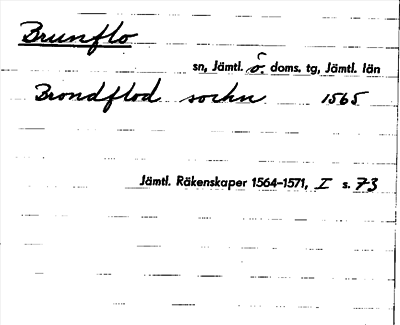 Brunflo
sn, Jämtl. ö. doms. tg, Jämtl. län
Brondflod sochn 1565
Jämtl. Räkenskaper 1564-1571, I s. 73